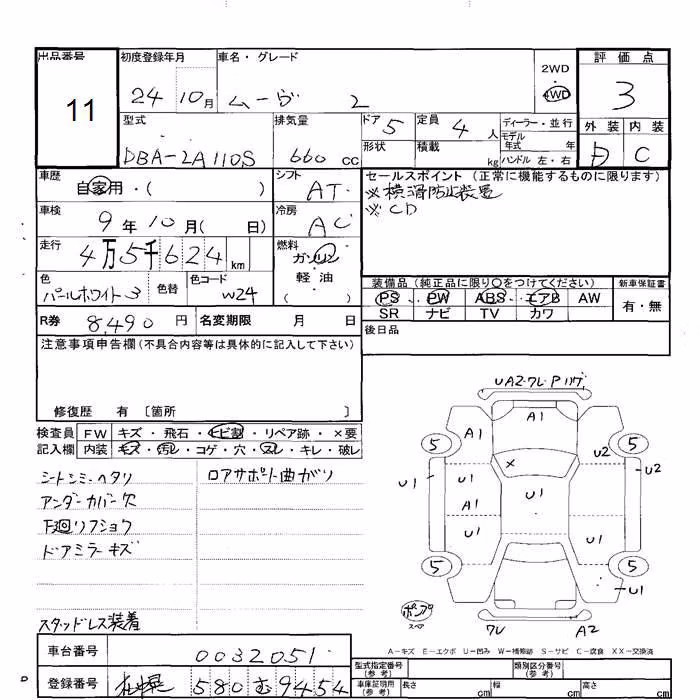 出品番号 初度登録年月 車名・グレード 2WD 評価点
11 24 10月 ムーヴ 2 4WD 3
型式 排気量 ドア 5 定員 4人 ディーラー・並行 外装 内装
DBA-LA110S 660 cc 形状 積載 kg モデル年式 年 D C
ハンドル 左・右
車歴 自家用・( ) シフト AT セールスポイント (正常に機能するものに限ります)
※横滑防止装置
※CD
車検 9年10月( 日) 冷房 AC
走行 4万5千624km 燃料 ガソリン 軽油 ( )
色 パールホワイト3 色替 色コード W24
装備品 (純正品に限り○をつけてください) 新車保証書
PS PW ABS エアB AW 有・無
SR ナビ TV カワ
R券 8490円 名変期限 月 日 後日品
注意事項申告欄 (不具合内容等は具体的に記入して下さい)
修復歴 有 〔箇所 〕
検査員 FW キズ・飛石・トビ割・リペア跡・×要
記入欄 内装 キズ・汚レ・コゲ・穴・スレ・キレ・破レ
シートシミ・ヘタリ ロアサポート曲がり
アンダーカバー欠
下廻リフショウ
ドアミラーキズ
スタッドレス装着
UA2・ワレ・Pハゲ
A1
A1
5 5
U2
U2
U1
×
U1
A1
U1
U1
5 5
U1
ポンプ
スペア
ワレ A2
A-キズ E-エクボ U-凹み W-補修跡 S-サビ C-腐食 XX-交換済
車台番号 0032051
登録番号 札幌 580 む 9454
型式指定番号 (参考) 類別区分番号 (参考)
車庫証明用 (参考) 長さ cm 幅 cm 高さ cm